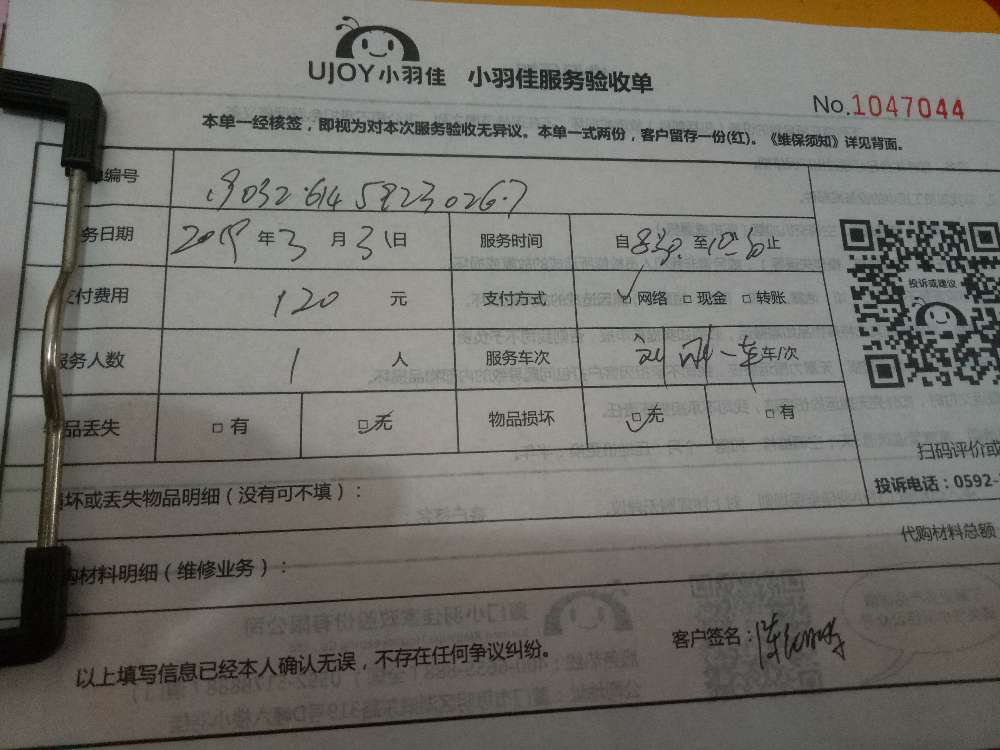 UJOY小羽佳 小羽佳服务验收单
No.1047044
本单一经核签，即视为对本次服务验收无异议。本单一式两份，客户留存一份(红)。《维保须知》详见背面。
单编号 1903261459230267
务日期 2019年3月31日 服务时间 自8:30至10:30止
支付费用 120元 支付方式 □网络 □现金 □转账
服务人数 1人 服务车次 车/次
品丢失 □有 □无 物品损坏 □无 □有
投诉或建议
扫码评价或
投诉电话：0592-
坏或丢失物品明细（没有可不填）：
代购材料总额
购材料明细（维修业务）：
客户签名：
以上填写信息已经本人确认无误，不存在任何争议纠纷。